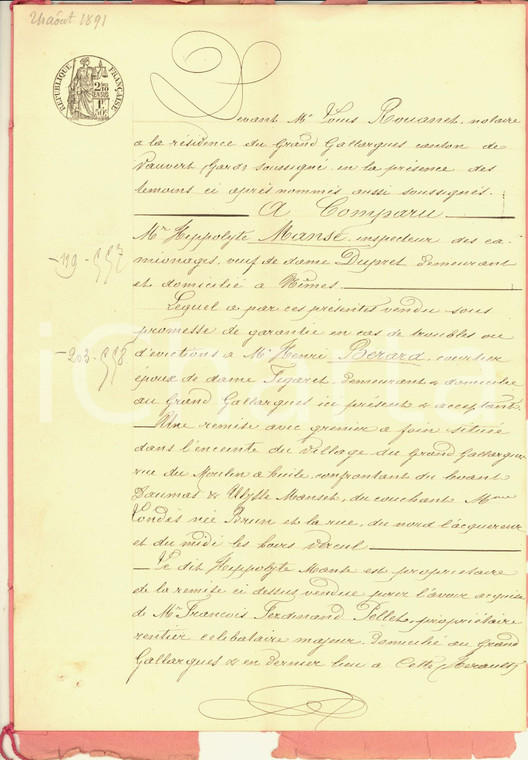 21 août 1891
RÉPUBLIQUE FRANÇAISE
2/10 EN SUS
1F. 50C.
Devant Me Louis Rouanet, notaire
a la résidence du Grand Gallargues canton de
Vauvert (Gard) soussigné en la présence des
temoins ci après nommés aussi soussignés.
A Comparu
Mr Hippolyte Manse, inspecteur des ca-
mionages, veuf de dame Dupret, demeurant
et domicilié à Nîmes
Lequel a par ces présentes vendu sous
promesse de garantie en cas de troubles ou
d'évictions à Mr Henri Berard, courtier
époux de dame Figaret, demeurant & domicilié
au Grand Gallargues ici présent & acceptant
Une remise avec grenier a foin située
dans l'enceinte du village du Grand Gallargues
rue du Moulin à huile, confrontant du levant
Daumas & Ulysse Manset, du couchant Mme
Londès née Brun et la rue, du nord l'acquereur
et du midi les hoirs
Le dit Hippolyte Manse est propriétaire
de la remise ci dessus vendue pour l'avoir acquise
de Mr François Ferdinand Pellet, propriétaire
rentier célibataire majeur domicilié au Grand
Gallargues & en dernier lieu a Cette (Herault)
-119-557
-203-558